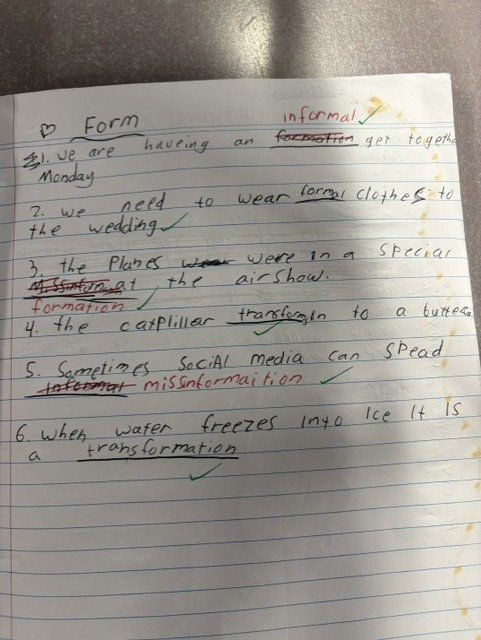 Form
informal
1. we are haveing an formation get togethe
Monday
2. we need to wear formal clothes to
the wedding
3. the Planes were in a special
missinform at the airshow.
formation
4. the catplillar transform in to a butter
5. Sometimes SociAl media can spead
informal missinformaition
6. when water freezes into Ice It Is
a transformation